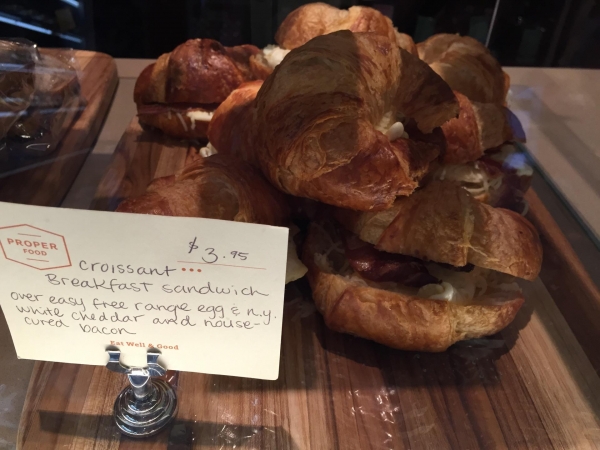 PROPER
FOOD
$3.95
croissant
Breakfast sandwich
over easy free range egg & n.y.
white cheddar and house-
cured bacon
Eat Well & Good